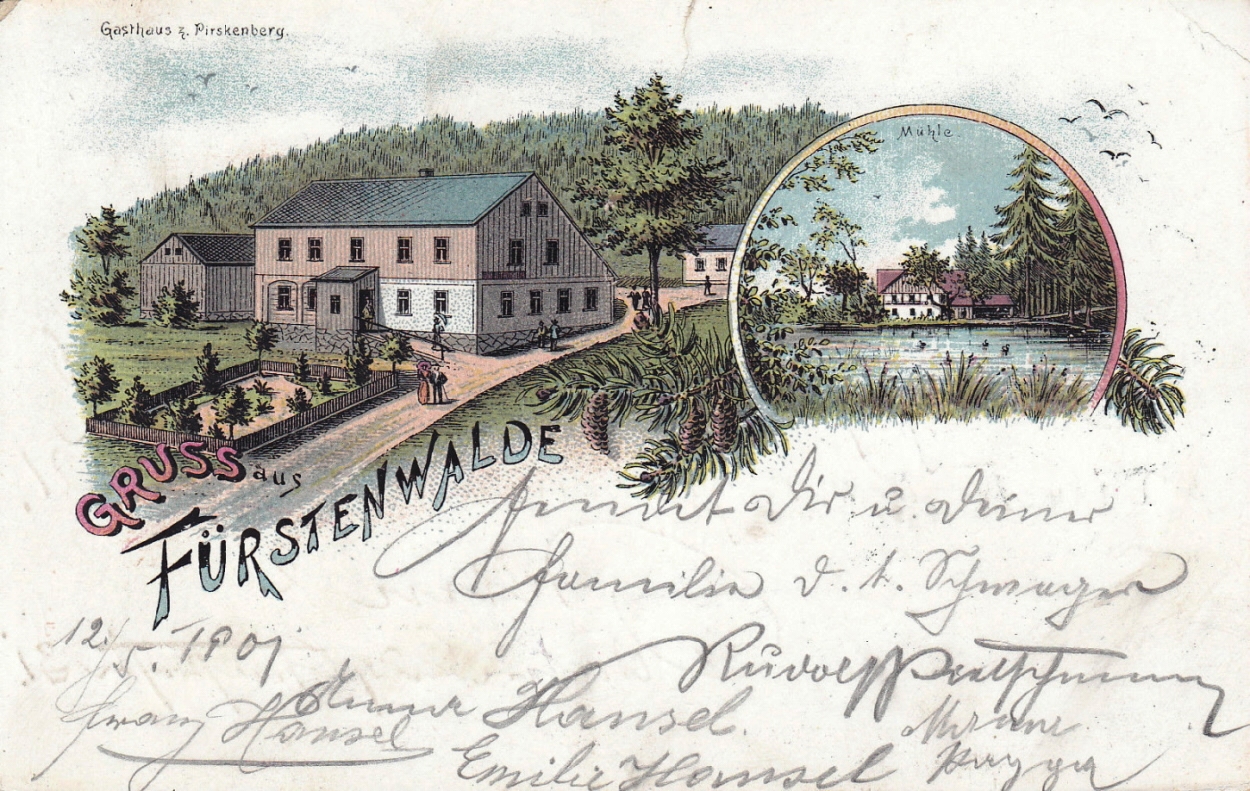 Gasthaus z. Pirskenberg.
Mühle.
GRUSS aus
FÜRSTENWALDE
sendet Dir u. Deiner
Familie D. t. Schwager
12/5. 1901
Rudolf
Franz Hansel
Anna Hansel.
Emilie Hansel